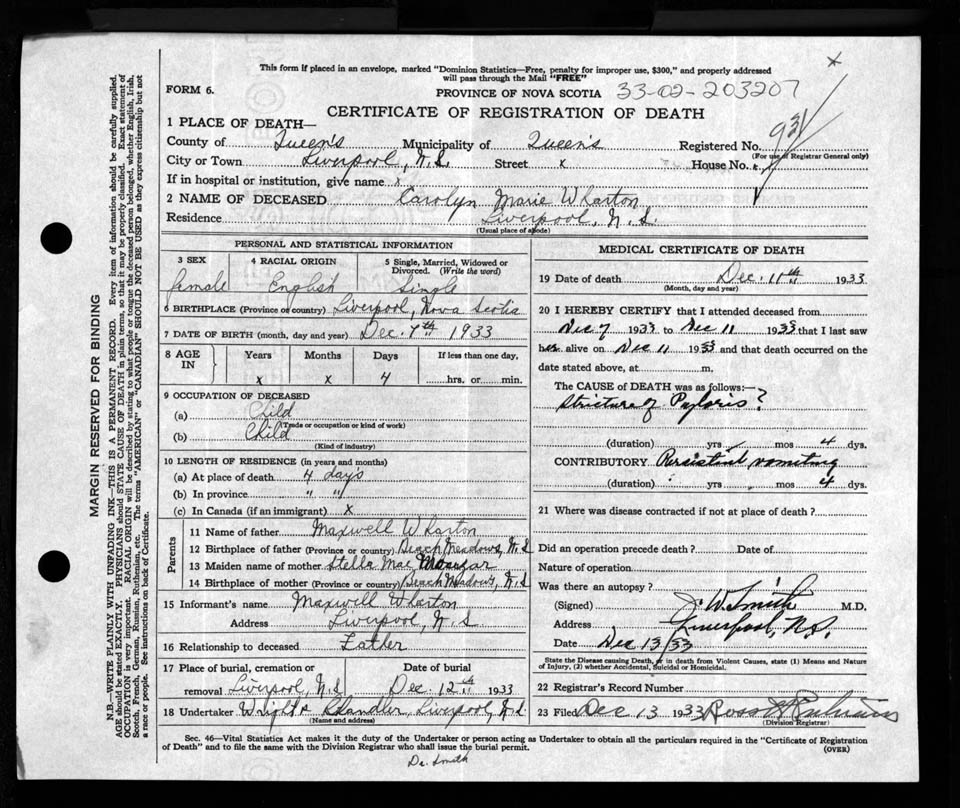 This form if placed in an envelope, marked "Dominion Statistics—Free, penalty for improper use, $300," and properly addressed
will pass through the Mail "FREE"
FORM 6.
PROVINCE OF NOVA SCOTIA 33-02-203207
CERTIFICATE OF REGISTRATION OF DEATH
1 PLACE OF DEATH—
County of Queen's Municipality of Queen's Registered No. 931
(For use of Registrar General only)
City or Town Liverpool, N.S. Street x House No.
If in hospital or institution, give name x
2 NAME OF DECEASED Carolyn Marie Wharton
Residence Liverpool, N.S.
(Usual place of abode)
PERSONAL AND STATISTICAL INFORMATION
3 SEX 4 RACIAL ORIGIN 5 Single, Married, Widowed or Divorced. (Write the word)
female English Single
6 BIRTHPLACE (Province or country) Liverpool, Nova Scotia
7 DATE OF BIRTH (month, day and year) Dec. 7th 1933
8 AGE IN Years Months Days If less than one day,
x x 4 hrs. or min.
9 OCCUPATION OF DECEASED
(a) Child
(Trade or occupation or kind of work)
(b) Child
(Kind of industry)
10 LENGTH OF RESIDENCE (in years and months)
(a) At place of death 4 days
(b) In province " "
(c) In Canada (if an immigrant) x
Parents
11 Name of father Maxwell Wharton
12 Birthplace of father (Province or country) Beach Meadows, N.S
13 Maiden name of mother Stella Mae
14 Birthplace of mother (Province or country) Beach Meadows, N.S
15 Informant's name Maxwell Wharton
Address Liverpool, N.S
16 Relationship to deceased Father
17 Place of burial, cremation or removal Liverpool, N.S Date of burial Dec. 12th 1933
18 Undertaker Chandler, Liverpool, N.S
(Name and address)
MEDICAL CERTIFICATE OF DEATH
19 Date of death Dec. 11th 1933
(Month, day and year)
20 I HEREBY CERTIFY that I attended deceased from
Dec 7 1933 to Dec 11 1933 that I last saw
her alive on Dec 11 1933 and that death occurred on the
date stated above, at m.
The CAUSE of DEATH was as follows:—
Stricture of Pyloris?
(duration) yrs mos 4 dys.
CONTRIBUTORY Persistent vomiting
(duration) yrs mos 4 dys.
21 Where was disease contracted if not at place of death?
Did an operation precede death? Date of
Nature of operation
Was there an autopsy?
(Signed) J. W. Smith M.D.
Address Liverpool, N.S.
Date Dec 13/33
State the Disease causing Death, or in death from Violent Causes, state (1) Means and Nature
of Injury, (2) whether Accidental, Suicidal or Homicidal.
22 Registrar's Record Number
23 Filed Dec 13 1933 Ross
(Division Registrar)
Sec. 46—Vital Statistics Act makes it the duty of the Undertaker or person acting as Undertaker to obtain all the particulars required in the "Certificate of Registration
of Death" and to file the same with the Division Registrar who shall issue the burial permit. (OVER)
Dr. Smith
MARGIN RESERVED FOR BINDING
N.B.—WRITE PLAINLY WITH UNFADING INK—THIS IS A PERMANENT RECORD. Every item of information should be carefully supplied.
AGE should be stated EXACTLY. PHYSICIANS should STATE CAUSE OF DEATH in plain terms, so that it may be properly classified. Exact statement of
OCCUPATION is very important. RACIAL ORIGIN will be described by stating to what people or tongue the deceased person belonged, whether English, Irish,
Scotch, French, German, Russian, Ruthenian, etc. The terms "AMERICAN" or "CANADIAN" SHOULD NOT BE USED as they express citizenship but not
a race or people. See instructions on back of Certificate.